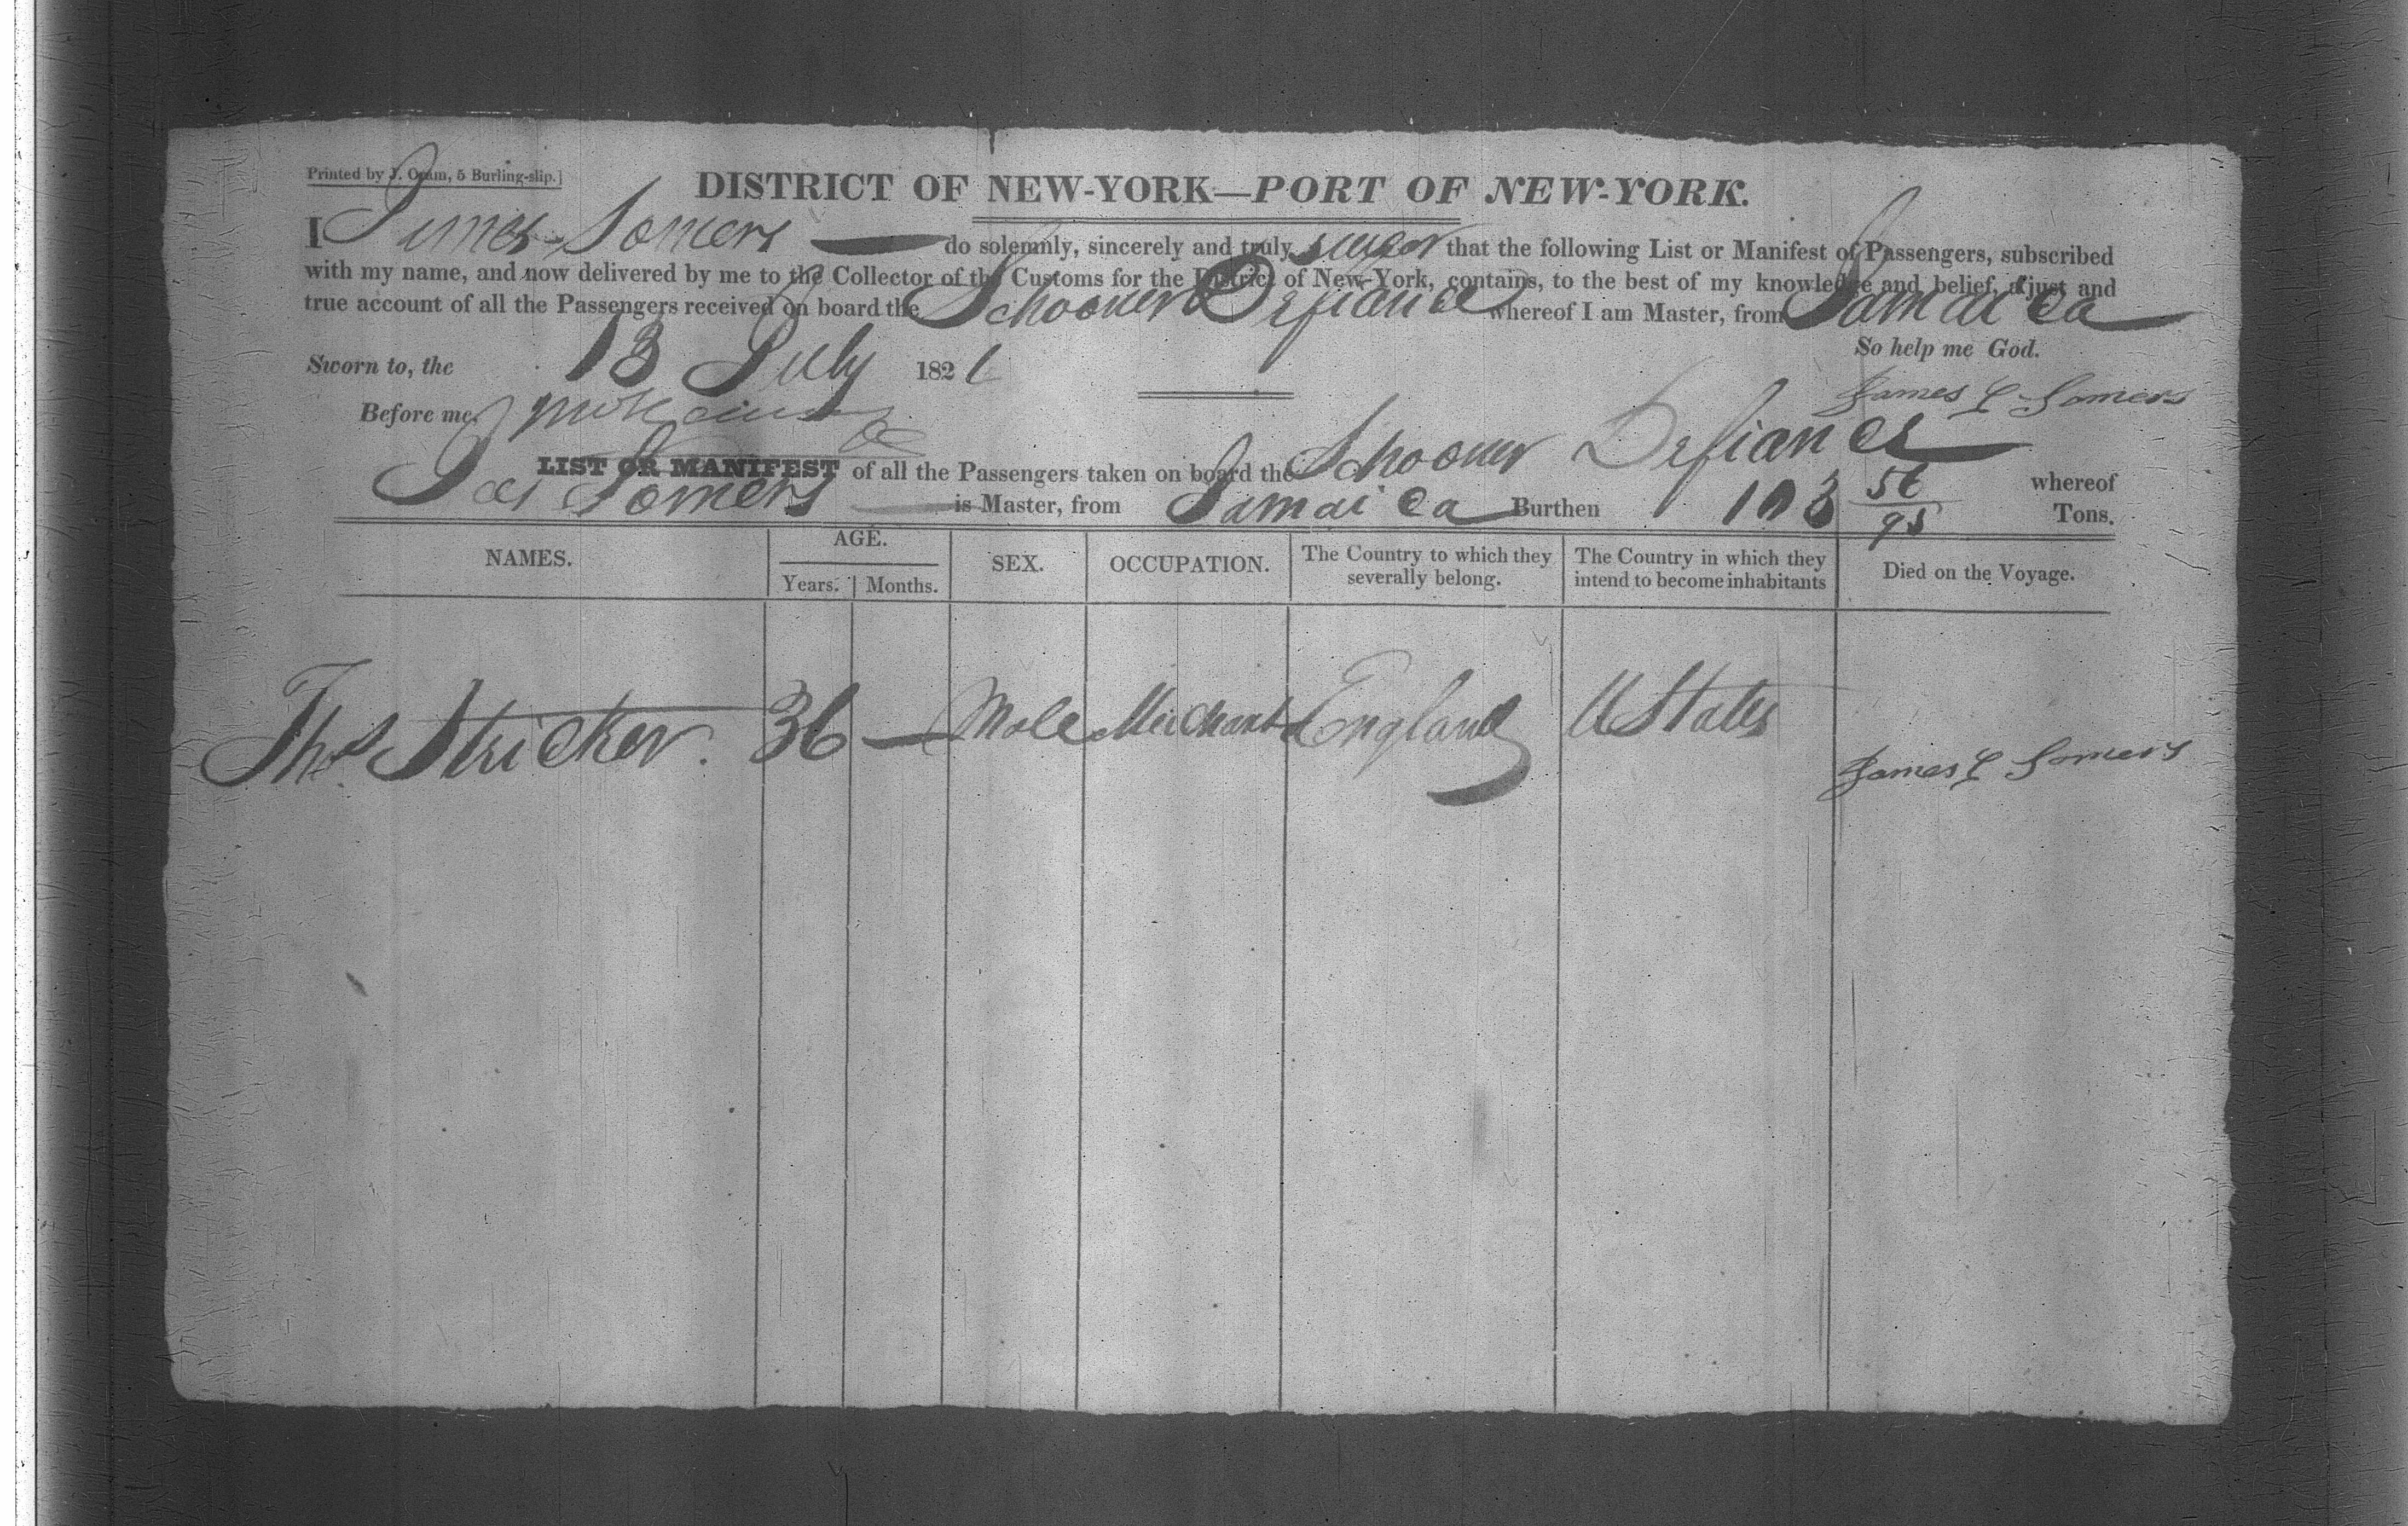 Printed by J. Oram, 5 Burling-slip.]
DISTRICT OF NEW-YORK—PORT OF NEW-YORK.
I James Somers do solemnly, sincerely and truly swear that the following List or Manifest of Passengers, subscribed
with my name, and now delivered by me to the Collector of the Customs for the District of New-York, contains, to the best of my knowledge and belief, a just and
true account of all the Passengers received on board the Schooner Defiance whereof I am Master, from Jamaica
So help me God.
Sworn to, the 13 July 1821
James L Somers
Before me,
LIST OR MANIFEST of all the Passengers taken on board the Schooner Defiance whereof
Jas Somers is Master, from Jamaica Burthen 103 56/95 Tons.
NAMES. AGE. Years. Months. SEX. OCCUPATION. The Country to which they severally belong. The Country in which they intend to become inhabitants Died on the Voyage.
Thos Stricker. 36 — Male Merchant England U States
James L Somers